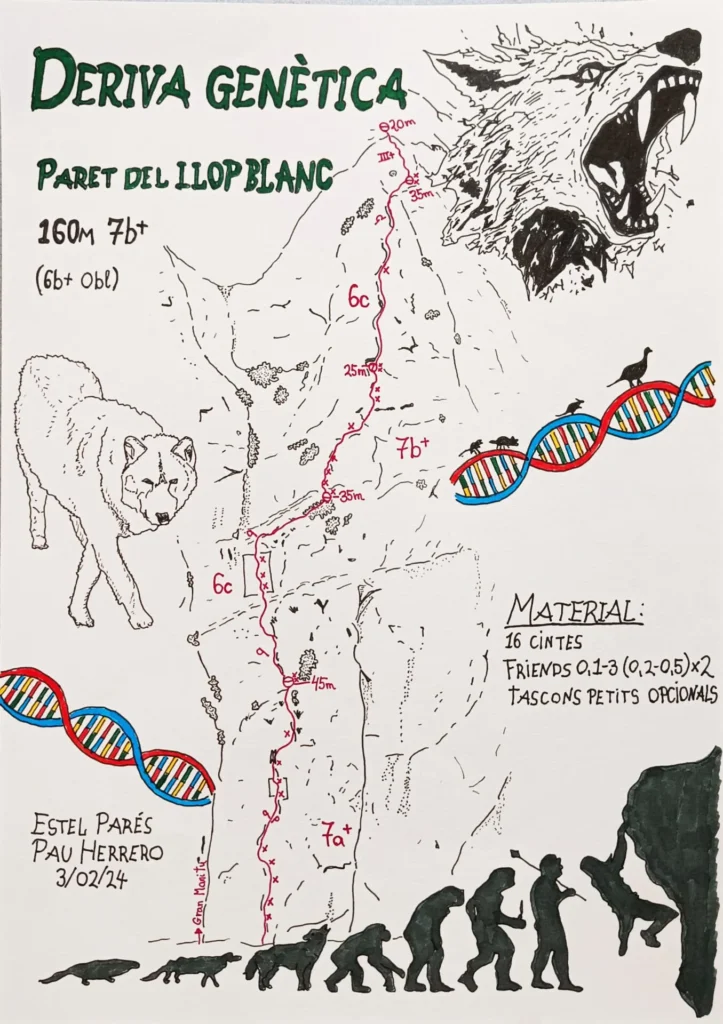 DERIVA GENÈTICA
PARET DEL LLOP BLANC
160M 7b+
(6b+ Obl)
20m
III+
35m
6c
25m
7b+
35m
6c
45m
7a+
Gran Manitu
MATERIAL:
16 CINTES
FRIENDS 0,1-3 (0,2-0,5)x2
TASCONS PETITS OPCIONALS
ESTEL PARÉS
PAU HERRERO
3/02/24